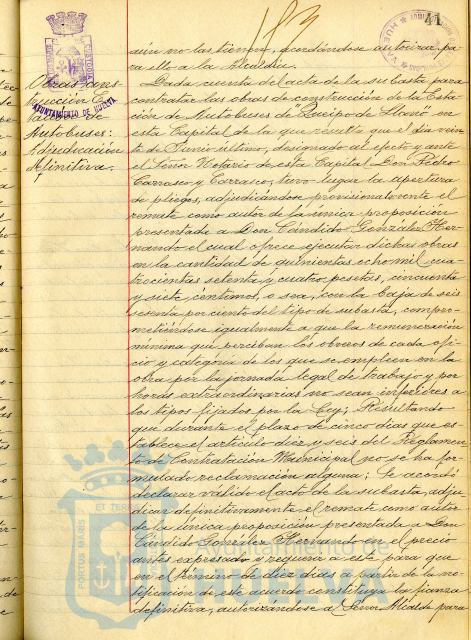 183
41
aún no las tienen, acordándose autorizar pa-
ra ello a la Alcaldía.
Obras cons-
trucción Es-
tación de
Autobuses:
Adjudicación
definitiva.
AYUNTAMIENTO DE HUELVA
Dada cuenta del acta de la subasta para
contratar las obras de construcción de la Esta-
ción de Autobuses de "Queipo de Llano" en
esta Capital de la que resulta que el día vein-
te de Junio último, designado al efecto y ante
el Señor Notario de esta Capital Don Pedro
Carrasco y Carrasco, tuvo lugar la apertura
de pliegos, adjudicándose provisionalmente el
remate como autor de la única proposición
presentada a Don Cándido González Her-
nando el cual ofrece ejecutar dichas obras
en la cantidad de quinientas ocho mil cua-
trocientas setenta y cuatro pesetas, cincuenta
y siete céntimos, o sea, con la baja de seis
setenta por ciento del tipo de subasta, compro-
metiéndose igualmente a que la remuneración
mínima que perciban los obreros de cada ofi-
cio y categoría de los que se empleen en la
obra por la jornada legal de trabajo y por
horas extraordinarias no sean inferiores a
los tipos fijados por la Ley; Resultando
que durante el plazo de cinco días que es-
tablece el artículo diez y seis del Reglamen-
to de Contratación Municipal no se ha for-
mulado reclamación alguna; Se acordó
declarar válido el acto de la subasta, adju-
dicar definitivamente el remate como autor
de la única proposición presentada a Don
Cándido González Hernando en el precio
antes expresado y requerir a este para que
en el término de diez días a partir de la no-
tificación de este acuerdo constituya la fianza
definitiva, autorizándose al Señor Alcalde para
PORTUS MARIS ET TERRAE
Ayuntamiento de
HUELVA